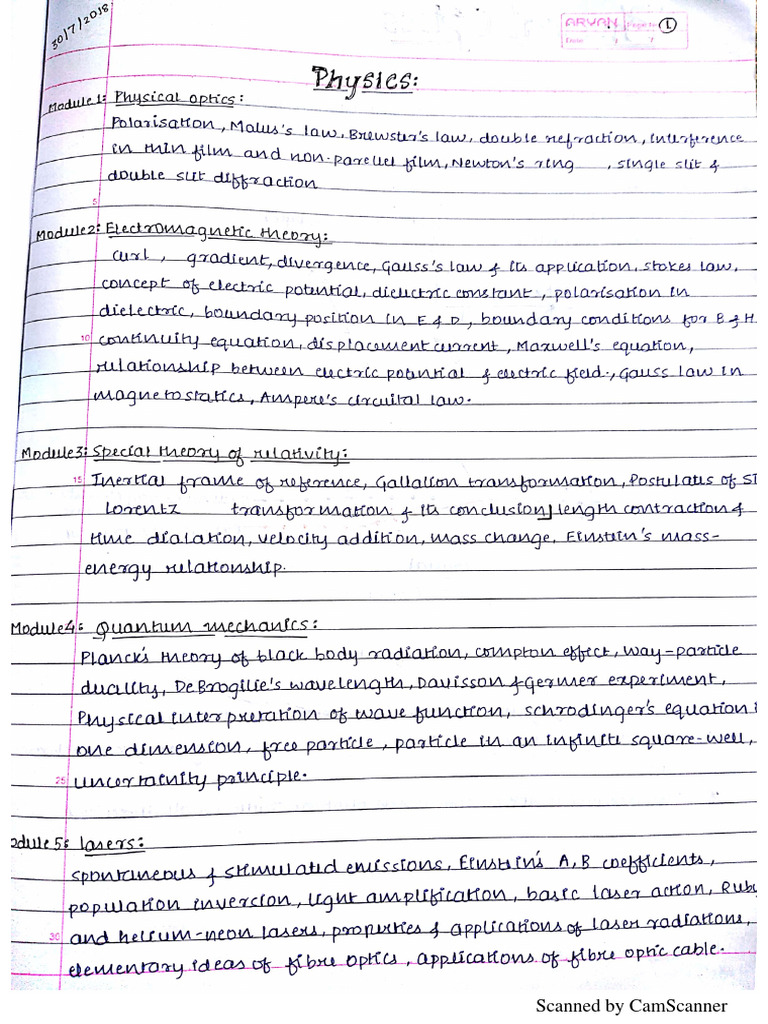 30/7/2018
ARYAN Page No 1
Date / /
Physics:
Module 1: Physical optics:
Polarisation, Malus's law, Brewster's law, double refraction, interference
in thin film and non-parellel film, Newton's ring , single slit &
double slit diffraction
5
Module 2: Electromagnetic theory:
curl, gradient, divergence, Gauss's law & its application, stokes law,
concept of electric potential, dielectric constant, polarisation in
dielectric, boundary position in E & D, boundary conditions for B & H
10 continuity equation, displacement current, Maxwell's equation,
relationship between electric potential & electric field., Gauss law in
magnetostatics, Ampere's circuital law.
Module 3: Special theory of relativity:
15 Inertial frame of reference, Gallalion transformation, Postulates of ST
Lorentz transformation & its conclusion, length contraction &
time dialation, velocity addition, mass change, Einstein's mass-
energy relationship.
Module 4: Quantum mechanics:
Planck's theory of black body radiation, compton effect, way-particle
duality, DeBrogilie's wavelength, Davisson & Germer experiment,
Physical interpretation of wave function, schrodinger's equation i
one dimension, free particle, particle in an infinite square-well,
25 uncertainity principle.
odule 5: lasers:
spontaneous & stimulated emissions, Einstein's A, B coefficients,
population inversion, light amplification, basic laser action, Ruby
30 and helium-neon lasers, properties & applications of laser radiations,
elementary ideas of fibre optics, applications of fibre optic cable.
Scanned by CamScanner